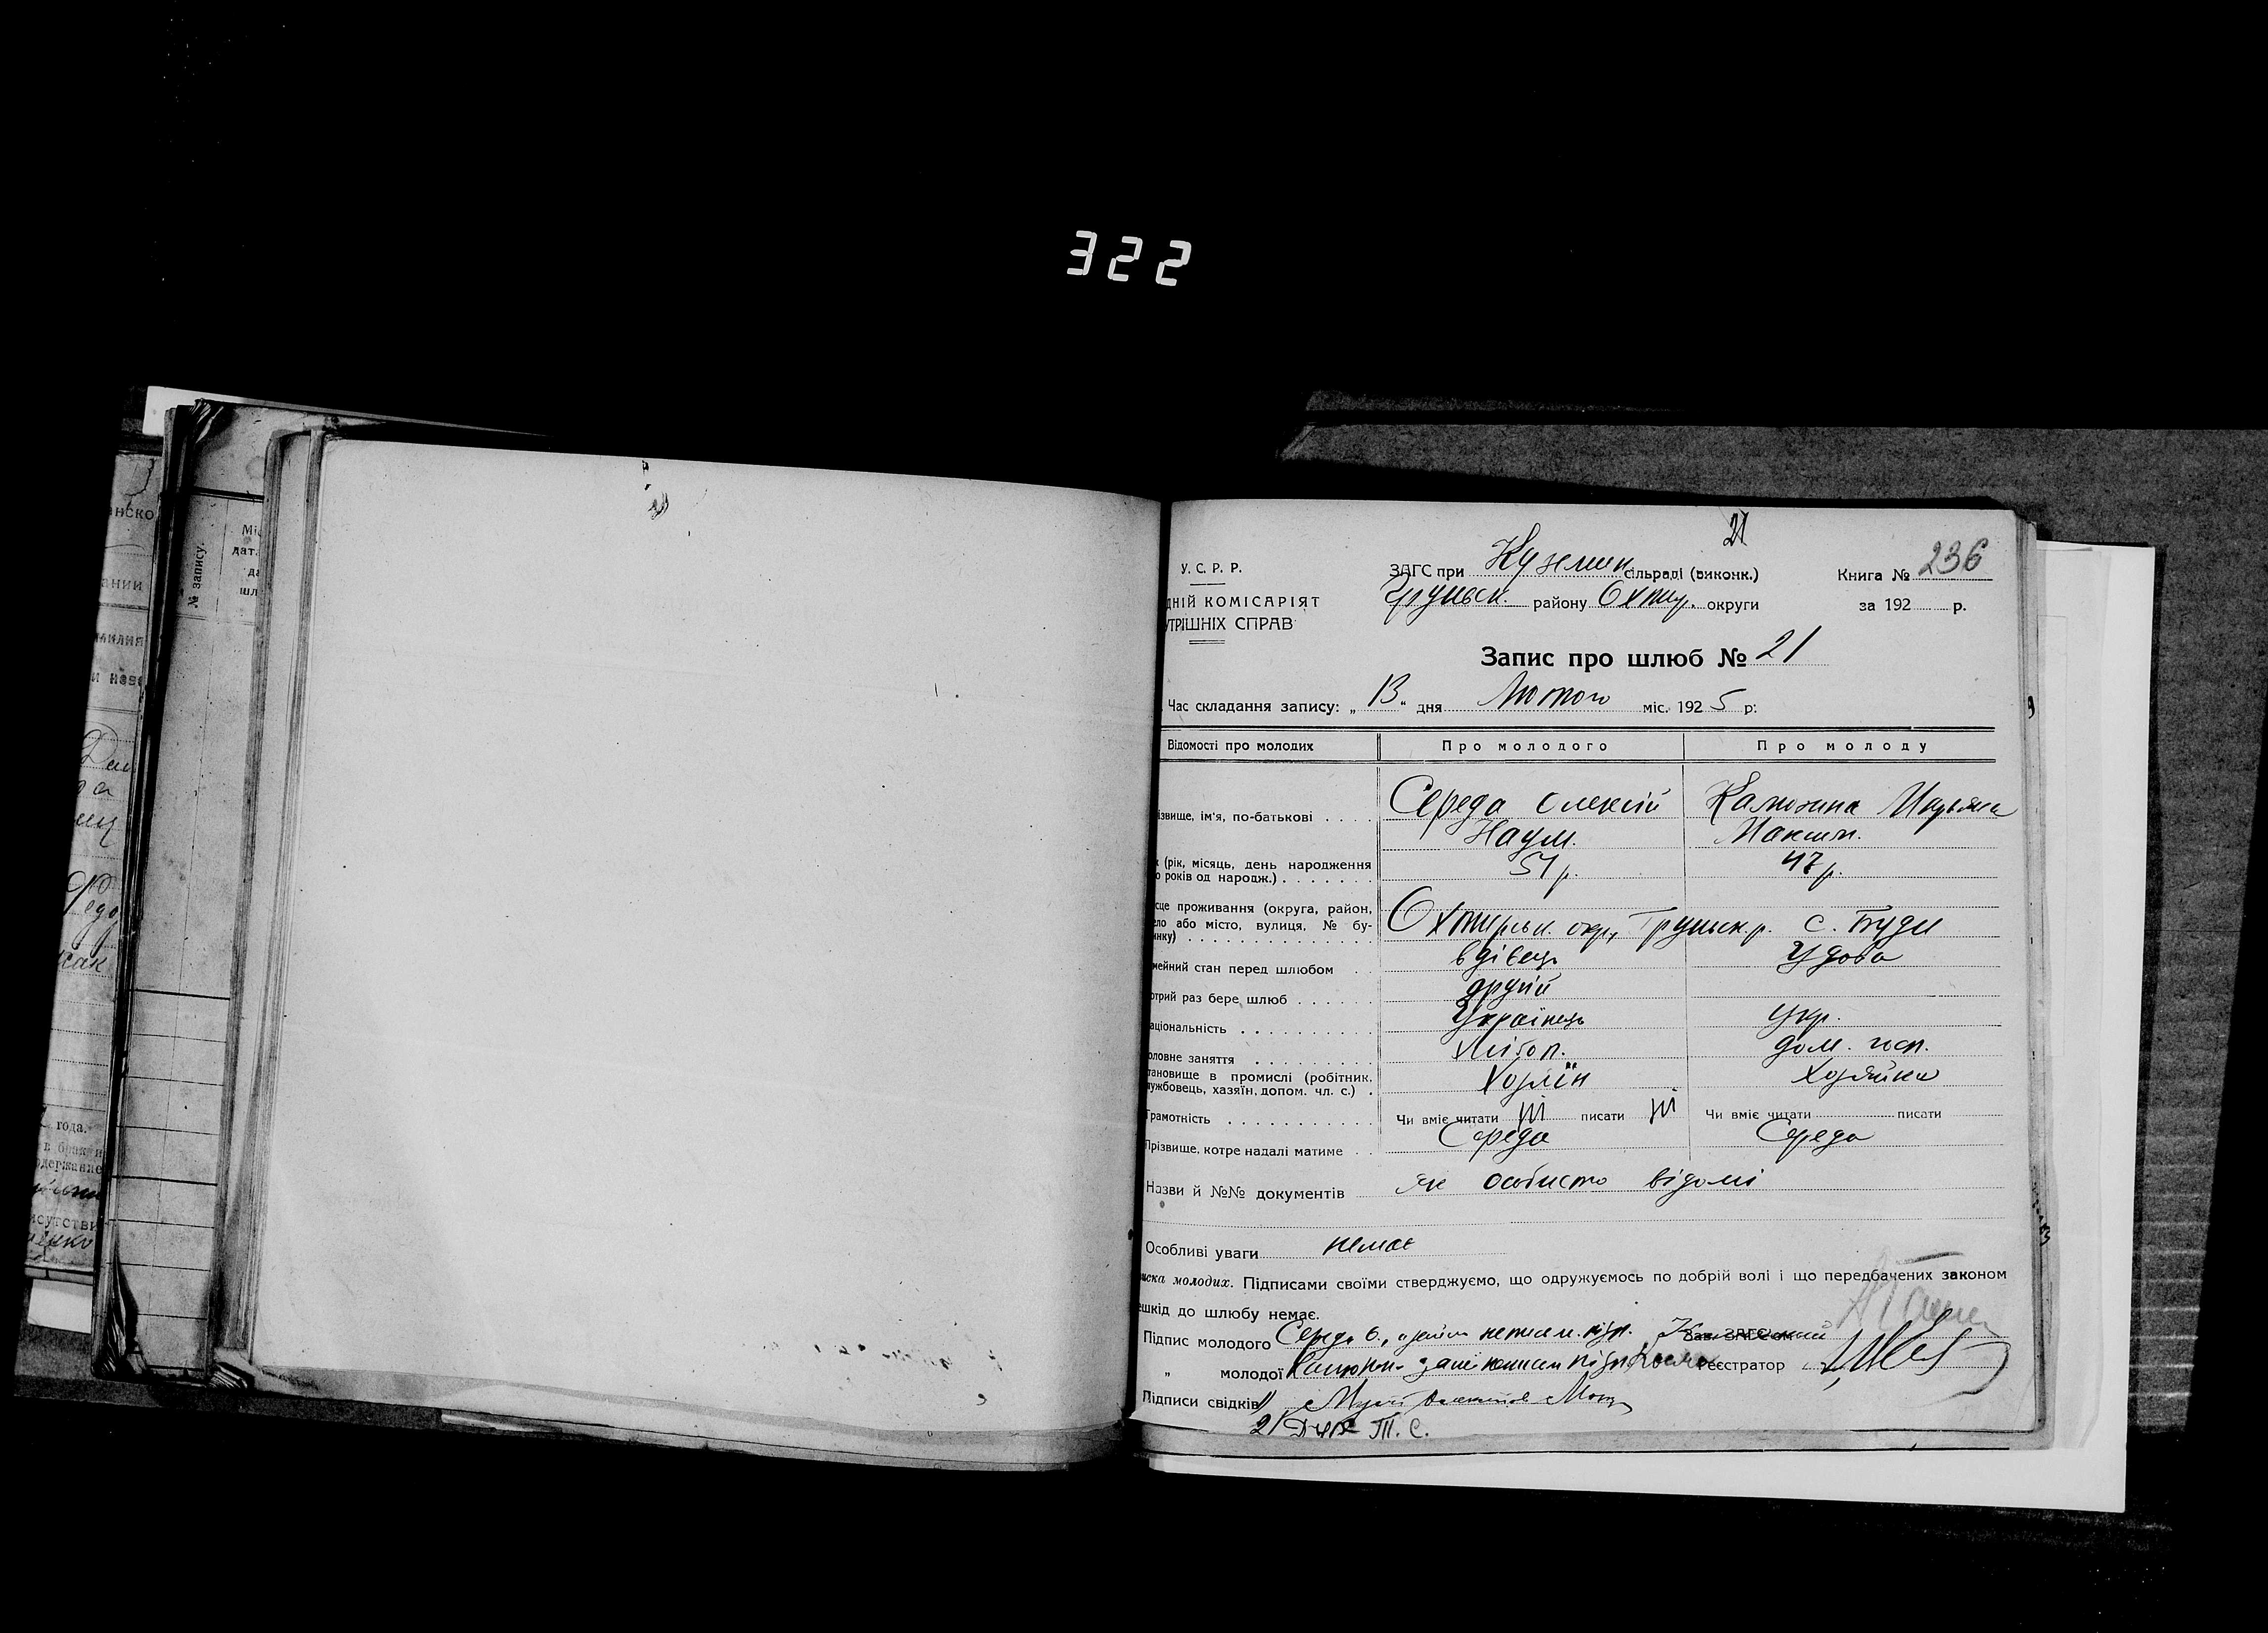 322
нско
ании
милия
и
года.
в брак и
одержание
исутстви
№ запису.
Мі
дат.
да
шл
21
236
У. С. Р. Р.
ДНІЙ КОМІСАРІЯТ
УТРІШНІХ СПРАВ
ЗАГС при Куземин. сільраді (виконк.)
Грунськ. району Охтир. округи
Книга №
за 192 р.
Запис про шлюб № 21
Час складання запису: „13“ дня Лютого міс. 1925 р:
Відомості про молодих Про молодого Про молоду
ізвище, ім'я, по-батькові . . . . Середа Олексій Калюжна
Наум. Максим.
(рік, місяць, день народження 51 р. 47 р.
о років од народж.) . . . . . . .
сце проживання (округа, район,
ело або місто, вулиця, № бу- Охтирськ. окр., Грунськ. р. с. Буди
инку) . . . . . . . . . . . . . .
мейний стан перед шлюбом . . вдівець удова
отрий раз бере шлюб . . . . . . другий
аціональність . . . . . . . . . . Українець Укр.
оловне заняття . . . . . . . . . Хлібоп. дом. госп.
тановище в промислі (робітник,
лужбовець, хазяїн, допом. чл. с.) . Хозяїн Хозяйка
Грамотність . . . . . . . . . . . Чи вміє читати ні писати ні Чи вміє читати писати
Прізвище, котре надалі матиме . . Середа Середа
Назви й №№ документів як особисто відомі
Особливі уваги немає
иска молодих. Підписами своїми стверджуємо, що одружуємось по добрій волі і що передбачених законом
ешкід до шлюбу немає.
Підпис молодого Середа Зав. ЗАГС'ом
„ молодої Реєстратор
Підписи свідків 1/
2/ Т. С.